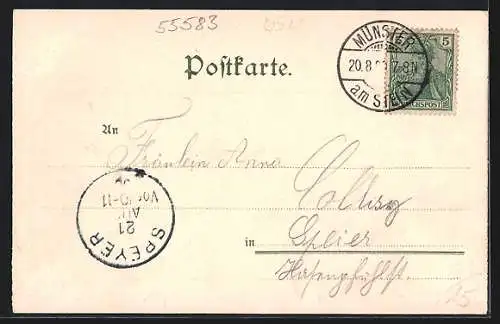 55583
MÜNSTER
20.8. 7-8N
am STEIN
5
REICHSPOST
Postkarte.
An
Fräulein Anna
in Speier
Hasenpfuhlst.
SPEYER
21
AUG
Vor 10-11
25